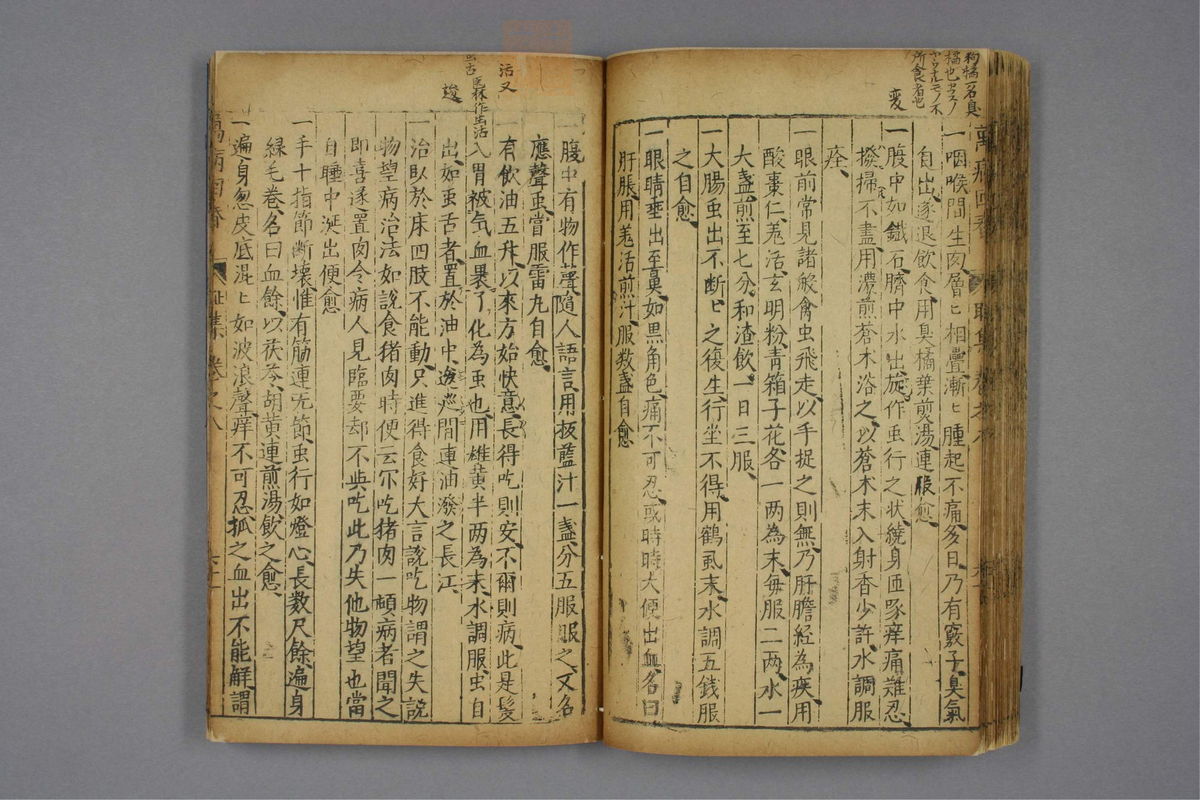 枸橘一名臭
橘也カラタチノ
所食者也
変
萬病回春
一咽喉間生肉層〻相疊漸〻腫起不痛多日乃有竅子臭氣
自出遂退飲食用臭橘葉煎湯連服愈
一腹中如鐵石臍中水出旋作虫行之狀繞身匝啄痒痛難忍
撥掃不盡用濃煎蒼木浴之以蒼木末入射香少許水調服
痊
一眼前常見諸般禽虫飛走以手捉之則無乃肝膽経為疾用
酸棗仁羌活玄明粉青箱子花各一两為末每服二两水一
大盞煎至七分和渣飲一日三服
一大腸虫出不断〻之復生行坐不得用鶴虱末水調五錢服
之自愈
一眼睛垂出至鼻如黒角色痛不可忍或時時大便出血名曰
肝脹用羌活煎汁服数盞自愈
一腹中有物作聲隨人語言用板藍汁一盞分五服服之又名
應聲虫當服雷丸自愈
活又
一有飲油五升以來方始快意長得吃則安不爾則病此是髮
入胃被気血裹了化為虫也用雄黄半两為末水調服虫自
出如虫活者置於油中逡巡間連油潑之長江
逡
一治臥於床四肢不能動只進得食好大言說吃物謂之失說
物望病治法如說食猪肉時便云尓吃猪肉一頓病者聞之
即喜遂置肉令病人見臨要却不與吃此乃失他物望也當
自睡中涎出便愈
一手十指節断壊惟有筋連旡節虫行如燈心長数尺餘遍身
綠毛卷名曰血餘以茯苓胡黄連煎湯飲之愈
一遍身忽皮底混〻如波浪聲痒不可忍抓之血出不能解謂
萬病回春
卷之八